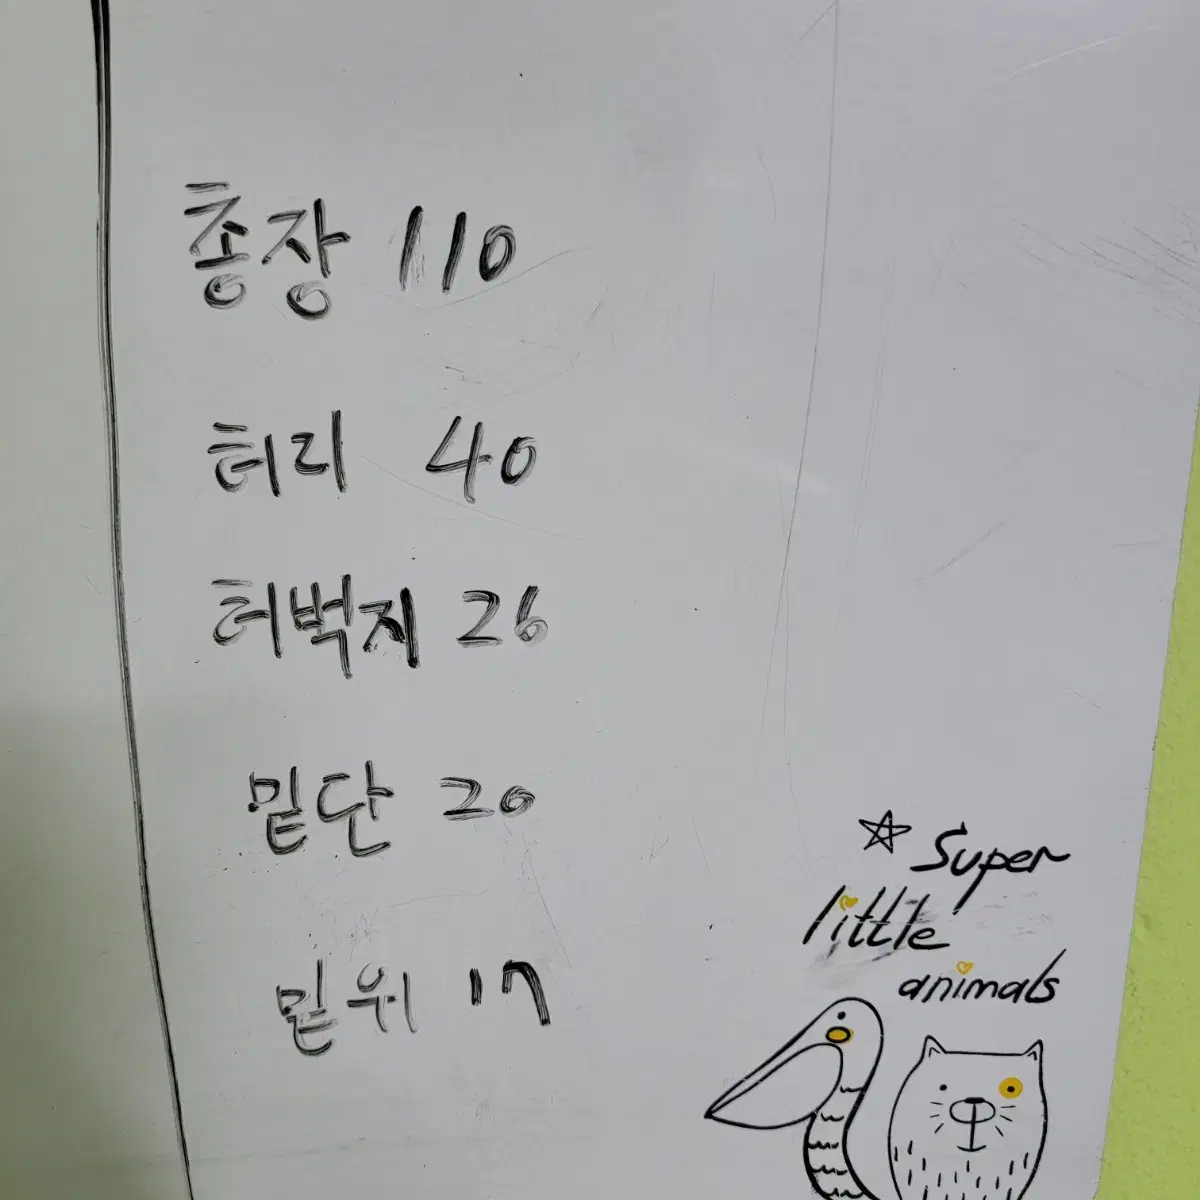 총장 110
허리 40
허벅지 26
밑단 20
밑위 17
Super
little
animals